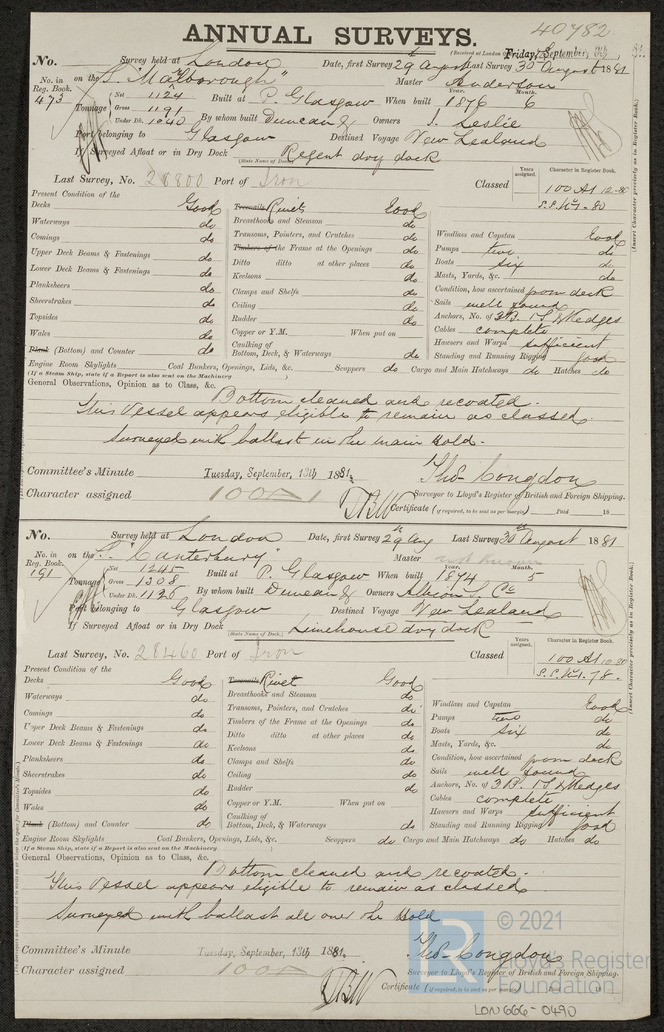 40782
ANNUAL SURVEYS.
(Received at London Friday, September, 9th
No. Survey held at London Date, first Survey 29th August Last Survey 30th August 1881
No. in Reg. Book. 473 on the S. "Malborough" Master Anderson
Tonnage Net 1124 Gross 1191 Under Dk. 1040 Built at P. Glasgow When built Year. 1876 Month. 6
By whom built Duncan & Owners J. Leslie
Port belonging to Glasgow Destined Voyage New Zealand
If Surveyed Afloat or in Dry Dock Regent dry dock
(State Name of Dock.)
Last Survey, No. 28800 Port of Iron Classed Years assigned. Character in Register Book. 100 A1 12-80
S.S. No 1-80
(Insert Character precisely as in Register Book.)
Present Condition of the
Decks Good Treenails Rivets Good
Waterways do Breasthooks and Stemson do Windlass and Capstan Good
Comings do Transoms, Pointers, and Crutches do Pumps two do
Upper Deck Beams & Fastenings do Timbers of the Frame at the Openings do Boats six do
Lower Deck Beams & Fastenings do Ditto ditto at other places do Masts, Yards, &c. do
Planksheers do Keelsons do Condition, how ascertained from deck
Sheerstrakes do Clamps and Shelfs do Sails well found
Topsides do Ceiling do Anchors, No. of 3B. 1S. 2 Kedges
Wales do Rudder do Cables complete
Plank (Bottom) and Counter do Copper or Y.M. When put on Hawsers and Warps sufficient
Caulking of Bottom, Deck, & Waterways do Standing and Running Rigging good
Engine Room Skylights Coal Bunkers, Openings, Lids, &c. Scuppers do Cargo and Main Hatchways do Hatches do
(If a Steam Ship, state if a Report is also sent on the Machinery )
General Observations, Opinion as to Class, &c.
Bottom cleaned and recoated.
This Vessel appears eligible to remain as classed.
Surveyed with ballast in the main hold.
Committee's Minute Tuesday, September, 13th 1881. Thos. Congdon
Character assigned 100 A 1 Surveyor to Lloyd's Register of British and Foreign Shipping.
Certificate (if required, to be sent as per margin) Paid 18
No. Survey held at London Date, first Survey 29th Aug Last Survey 30th August 1881
No. in Reg. Book. 191 on the S. "Canterbury" Master not known
Tonnage Net 1245 Gross 1308 Under Dk. 1126 Built at P. Glasgow When built Year. 1874 Month. 5
By whom built Duncan & Owners Albion S. Co
Port belonging to Glasgow Destined Voyage New Zealand
If Surveyed Afloat or in Dry Dock Limehouse dry dock
(State Name of Dock.)
Last Survey, No. 28460 Port of Iron Classed Years assigned. Character in Register Book. 100 A1 10-80
S.S. No 1-78.
(Insert Character precisely as in Register Book.)
Present Condition of the
Decks Good Treenails Rivet Good
Waterways do Breasthooks and Stemson do Windlass and Capstan Good
Comings do Transoms, Pointers, and Crutches do Pumps two do
Upper Deck Beams & Fastenings do Timbers of the Frame at the Openings do Boats six do
Lower Deck Beams & Fastenings do Ditto ditto at other places do Masts, Yards, &c. do
Planksheers do Keelsons do Condition, how ascertained from deck
Sheerstrakes do Clamps and Shelfs do Sails well found
Topsides do Ceiling do Anchors, No. of 3B. 1S. 2 Kedges
Wales do Rudder do Cables complete
Plank (Bottom) and Counter do Copper or Y.M. When put on Hawsers and Warps sufficient
Caulking of Bottom, Deck, & Waterways do Standing and Running Rigging good
Engine Room Skylights Coal Bunkers, Openings, Lids, &c. Scuppers do Cargo and Main Hatchways do Hatches do
(If a Steam Ship, state if a Report is also sent on the Machinery )
General Observations, Opinion as to Class, &c.
Bottom cleaned and recoated.
This Vessel appears eligible to remain as classed
Surveyed with ballast all over the hold
© 2021
Lloyd's Register
Foundation
Committee's Minute Tuesday, September, 13th 1881. Thos. Congdon
Character assigned 100 A Surveyor to Lloyd's Register of British and Foreign Shipping.
Certificate (if required, to be sent as per margin) 18
LON666-0490